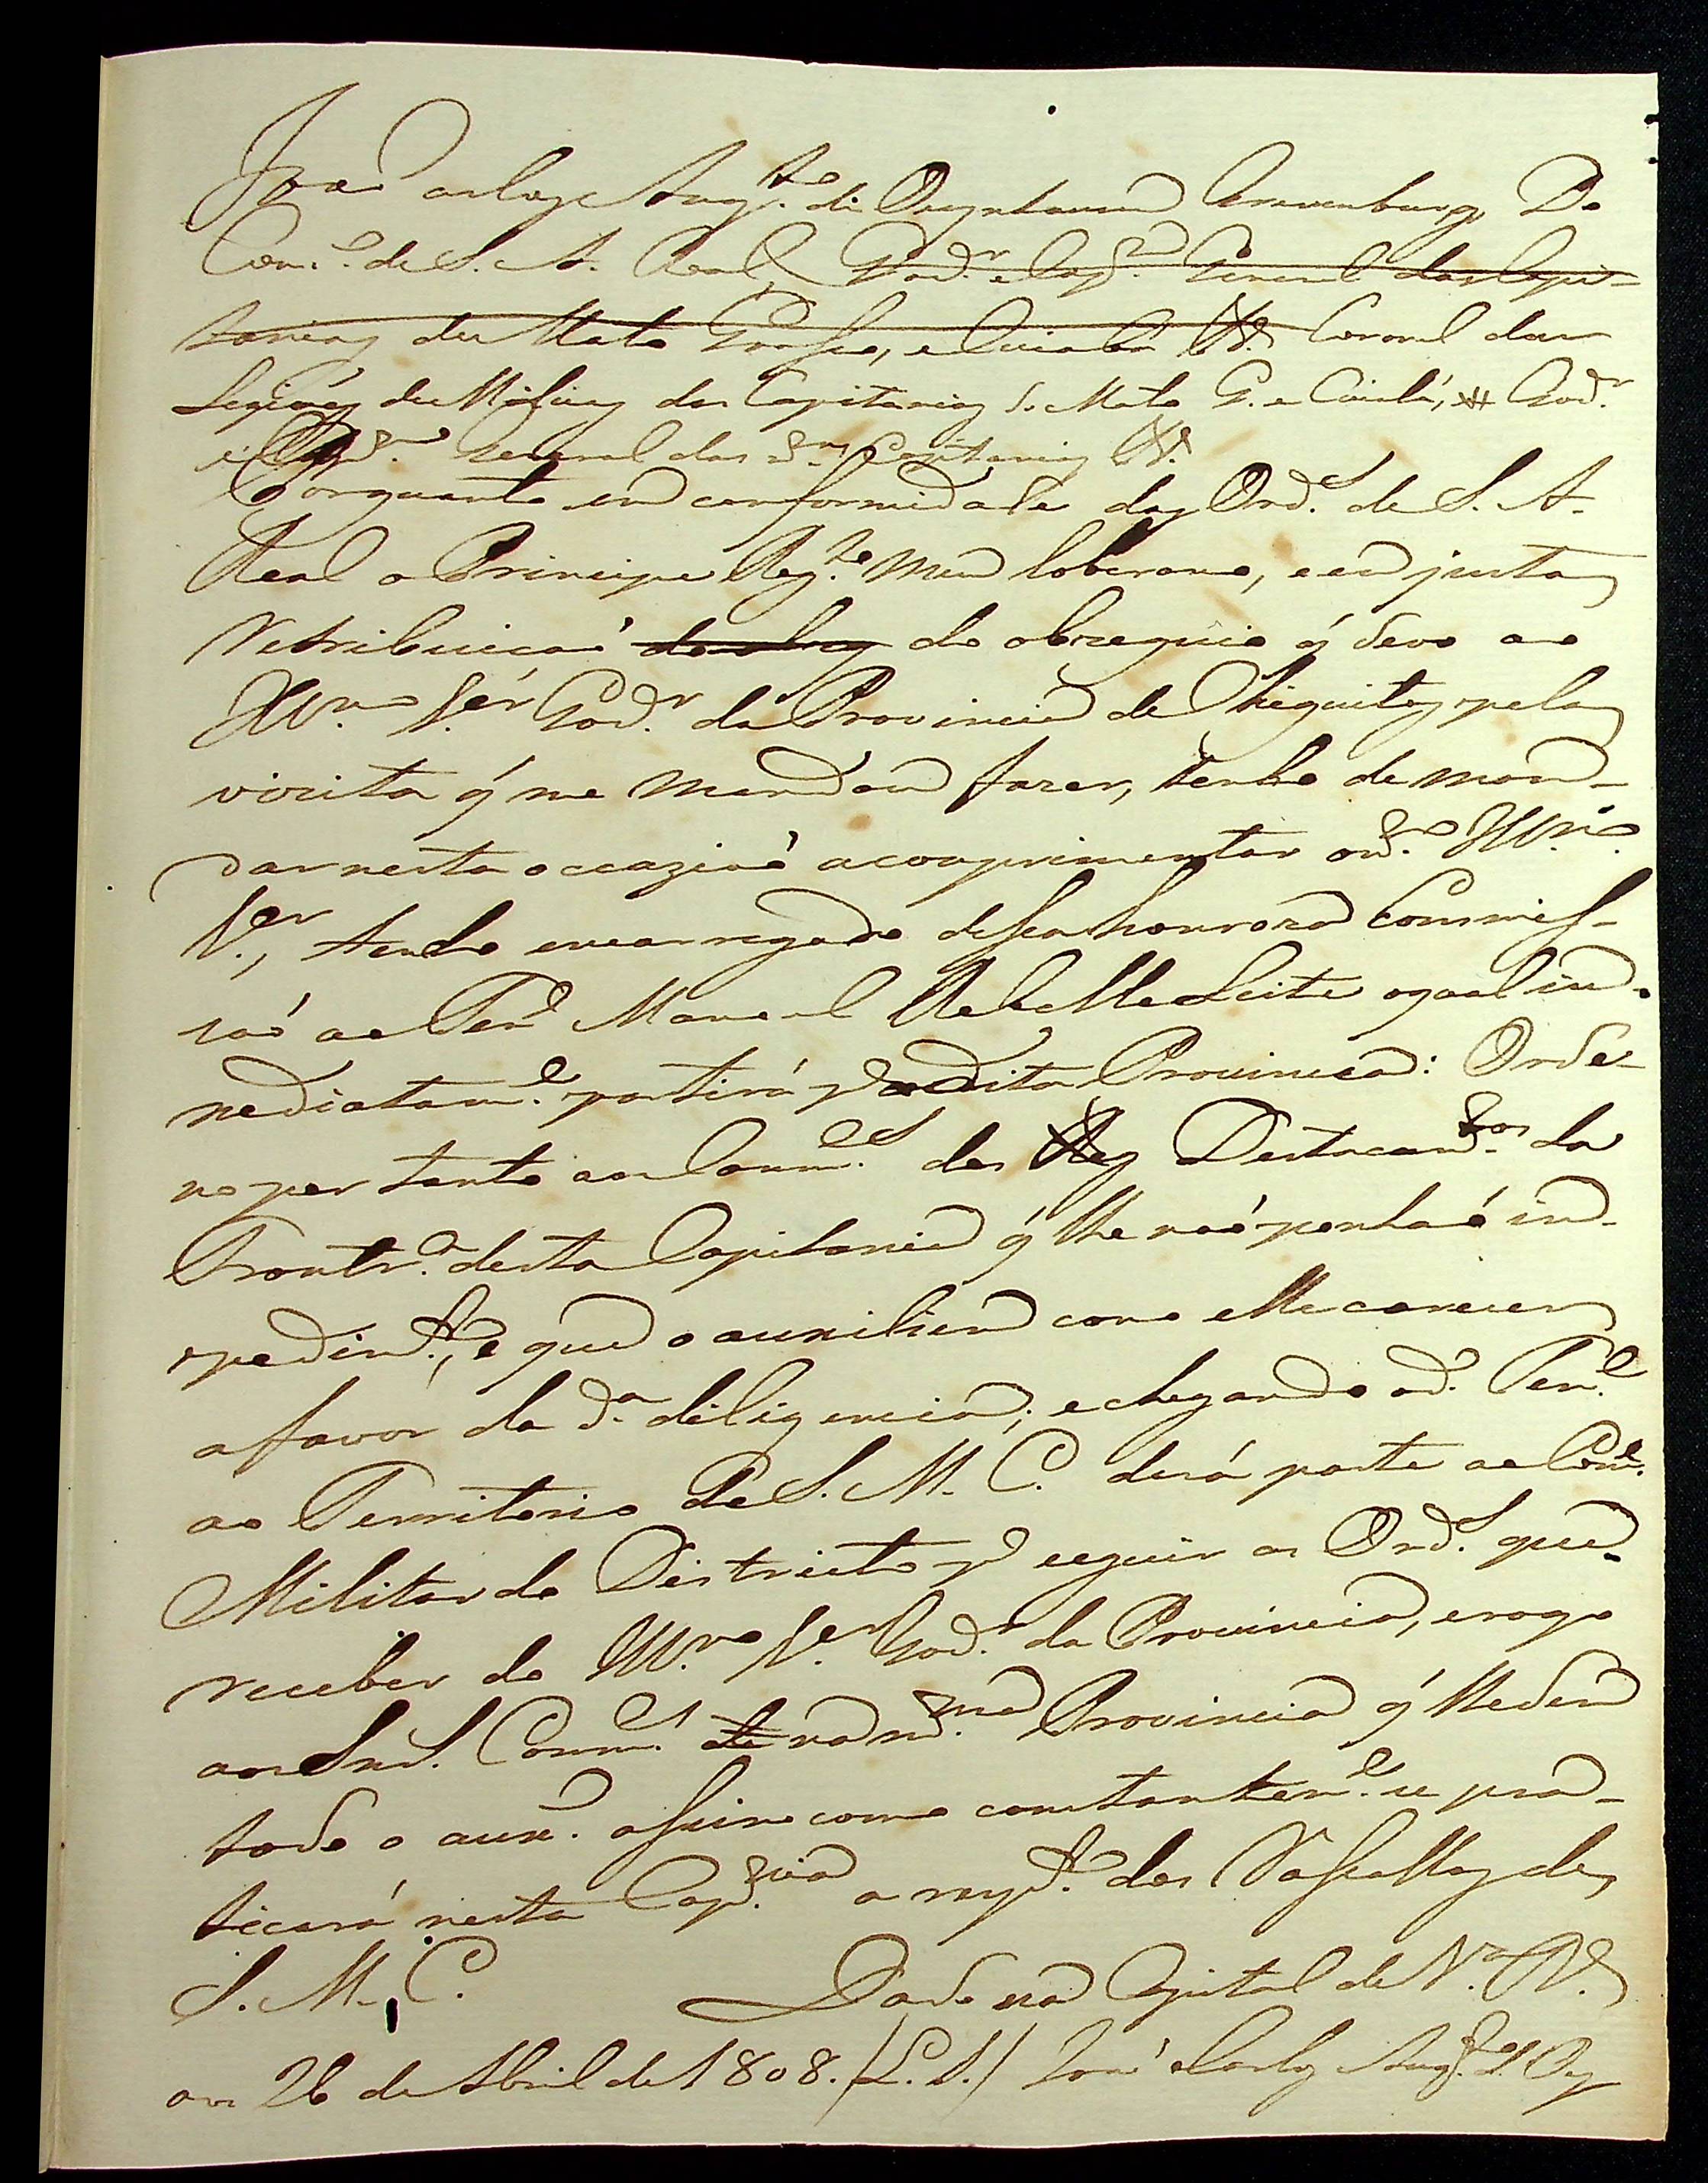 João Carlos Aug.to de Oeynhausen Grevenburg, Do
Con.o de S. A. Real, Gov.or e Cap.m General das Capi-
tanias de Mato Grosso, e Cuiabá &.a Coronel das
Legioens de Milicias das Capitanias de Mato G. e Cuiabá, Gov.or
e Cap.m General das d.as Capitanias &.a
Porquanto em conformidade das Ord.s de S. A.
Real o Principe Reg.te Meu Soberano, e em justa
Retribuicaõ do obzequio q̃ devo ao
Ill.mo S.or Gov.or da Provincia de Chiquitos pela
vizita q̃ me mandou fazer, tenho de man-
dar nesta occaziaõ a comprimentar o d.o Ill.mo
S.or, tenho encarregado dessa honroza Commis-
saõ ao Ten.e Manoel Rebello Leite o qual im-
mediatam.e partirá p.a a dita Provincia: Orde-
no por tanto aos Comm.es dos Destacam.tos da
Frontr.a desta Capitania q̃ lhe naõ ponhaõ im-
pedim.to, e que o auxiliem como elle carecer
a favor da d.a diligencia; e chegando o d.o Ten.e
ao Territorio de S. M. C. dará parte ao Com.e
Militar do Districto p.a seguir as Ord.s que
receber do Ill.mo S.or Gov.or da Provincia, e rogo
aos Snr.s Comm.es na m.ma Provincia q̃ lhe dem
todo o aux.o assim como constantem.e se pra-
ticará nesta Cap.nia a resp.to dos Vassallos de
S. M. C. Dado na Capital de V.a B.a
aos 26 de Abril de 1808. /L. S./ João Carlos Aug.to d'Oey